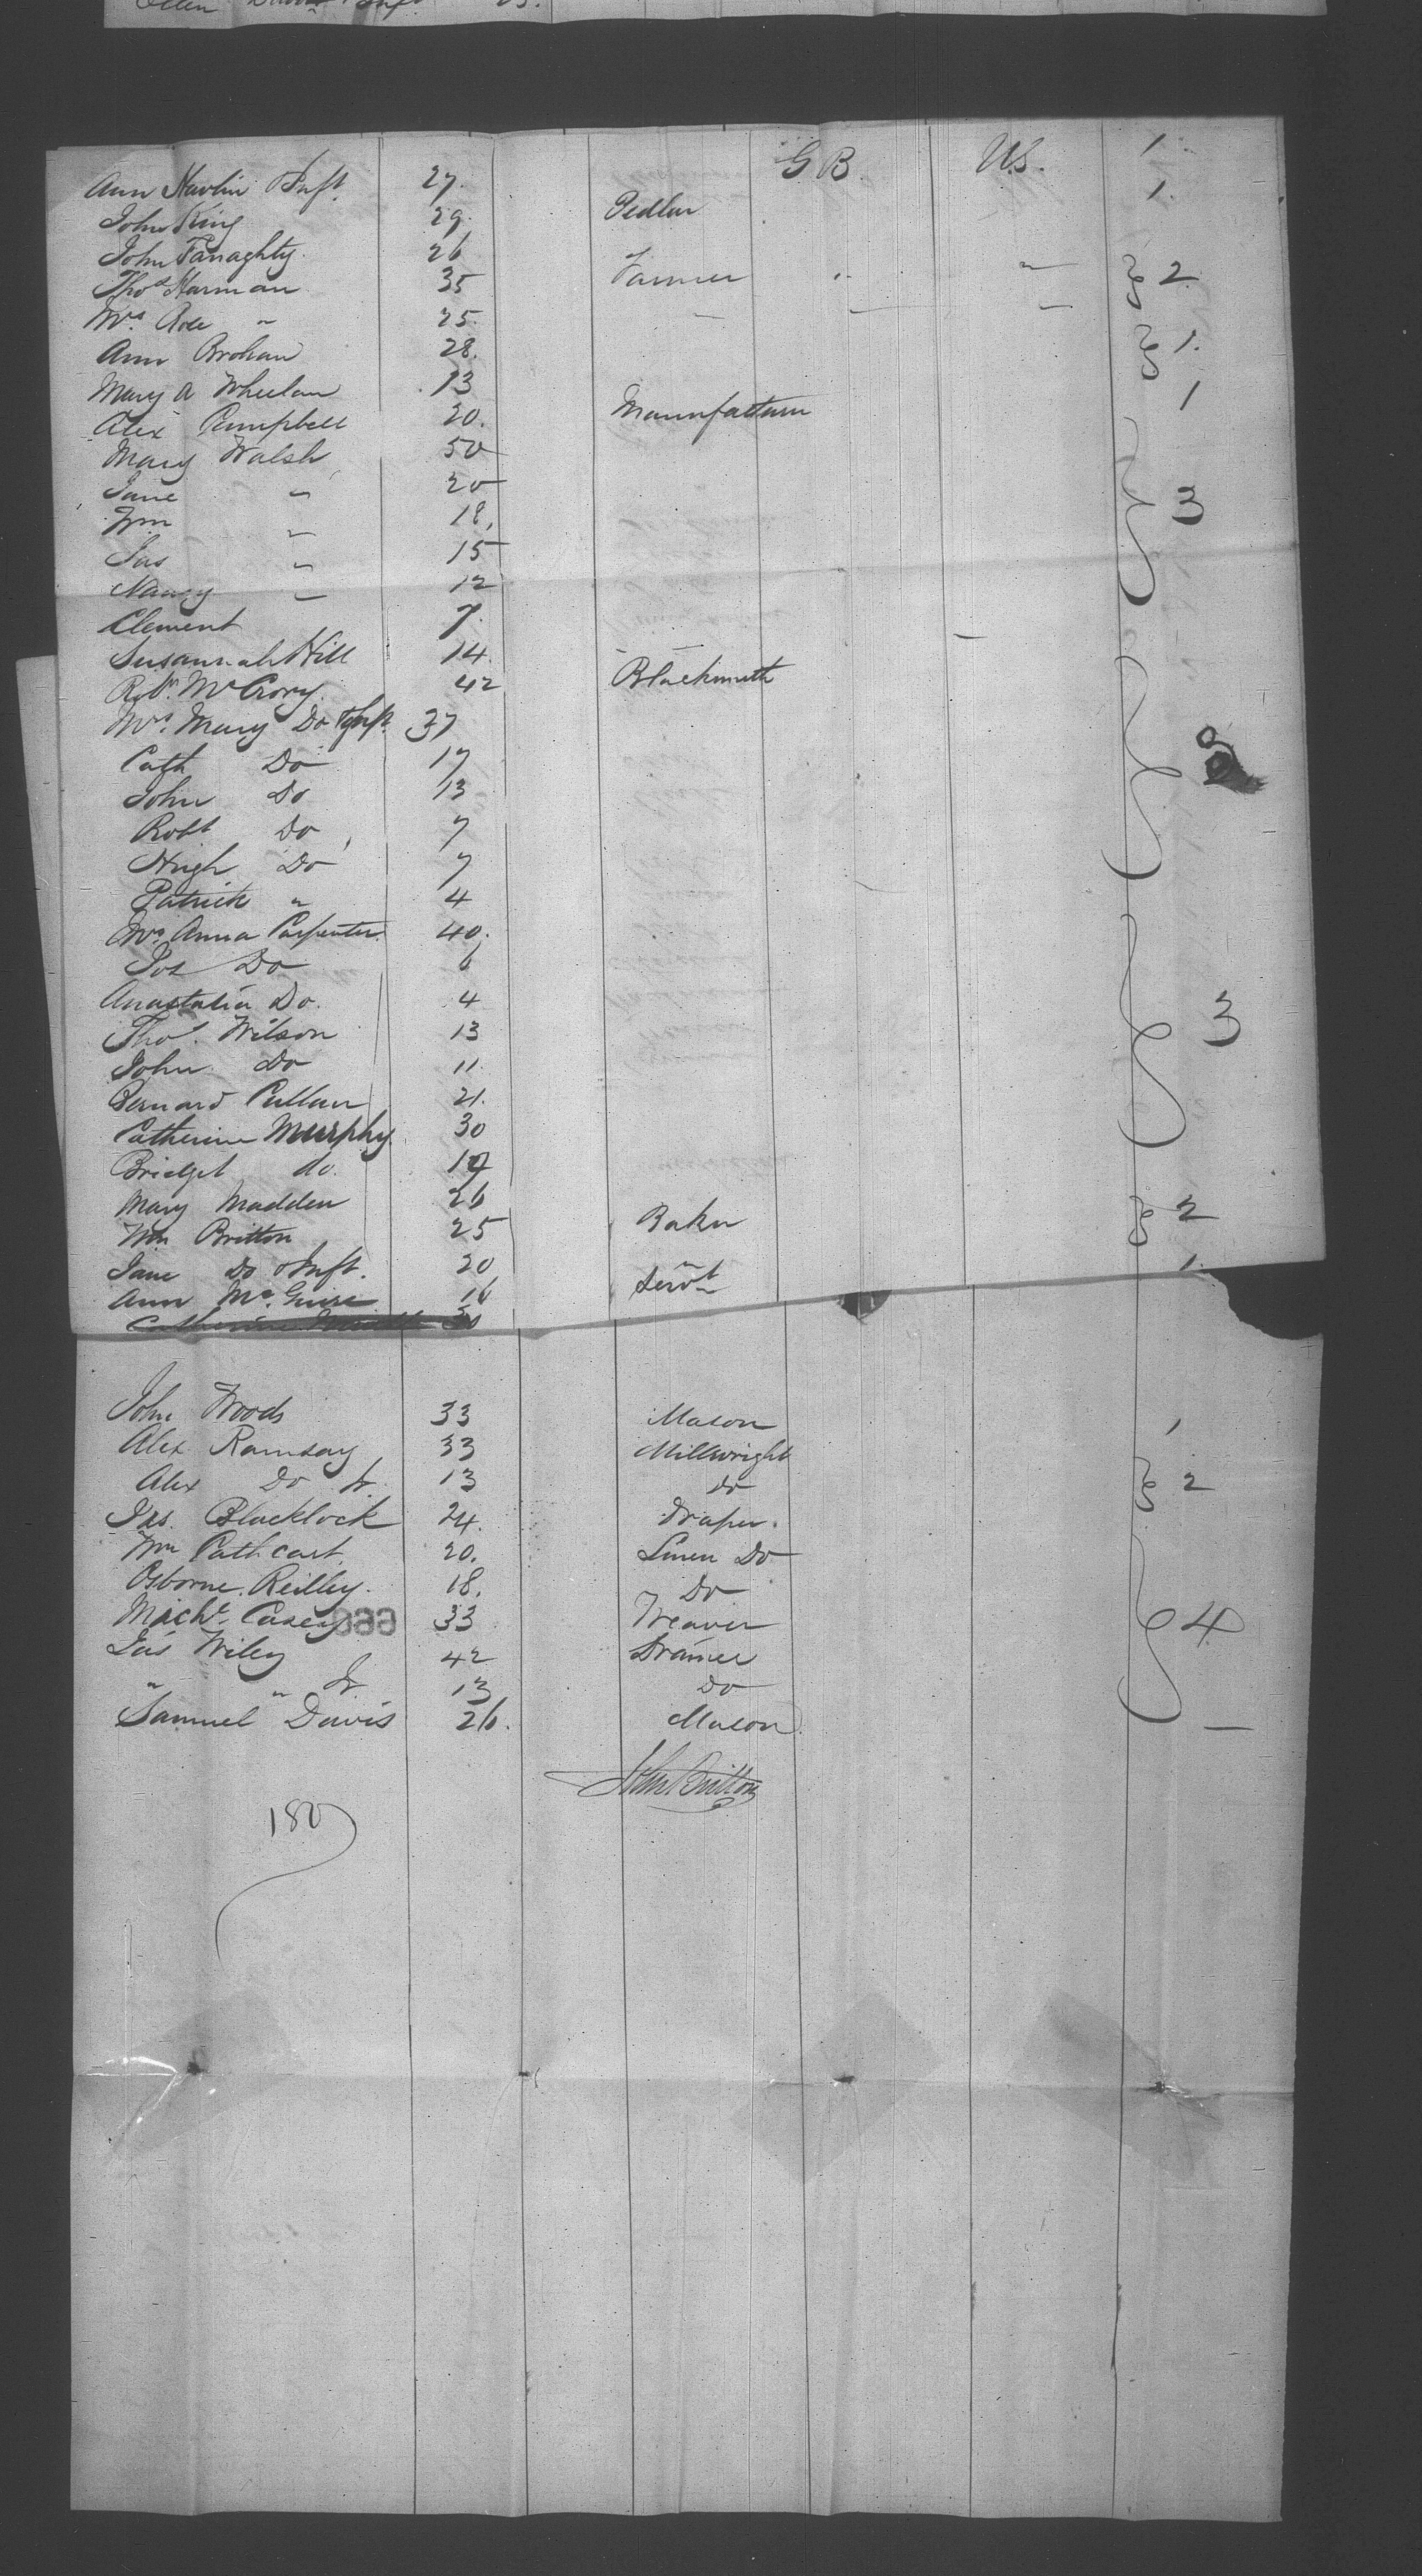 Ann Havlin & Inft. 27. G B. U.S. 1.
John King 29. Pedlar 1.
John Fanaghty 26
Thos Harman 35 Farmer " " 2
Mrs. Rose " 25. - - -
Ann Brohan 28. 1.
Mary A Wheelan 13 1
Alex Campbell 20. Manufacturer
Mary Walsh 50
Jane " 20 3
Wm " 18.
Jas " 15
Nancy " 12
Clement 7.
Susannah Hill 14. -
Robt. McCrory 42 Blacksmith
Mrs. Mary Do & Inft. 37
Cath Do 17
John Do 13
Robt Do 7
Hugh Do 7
Patrick " 4
Mrs. Anna Carpenter. 40.
Jos Do 6
Anastatia Do. 4 3
Thos. Wilson 13
John Do 11.
Bernard Cullan 21.
Catherine Murphy 30
Bridget do. 19
Mary Madden 26 2
Wm Britton 25 Baker
Jane Do & Inft. 20 " 1.
Ann McGuire 16 Servt
Catherine 30
John Woods 33 Mason 1
Alex Ramsay 33 Millwright
Alex Do Jr. 13 Do 2
Jas. Blacklock 24. Draper.
Wm Cathcart 20. Linen Do
Osborne Reilley. 18. Do
Michl. Casey 33 Weaver 4
Jas Wiley 42 Drainer
" " Jr 13 Do
Samuel Davis 26. Mason -
John Britton
180